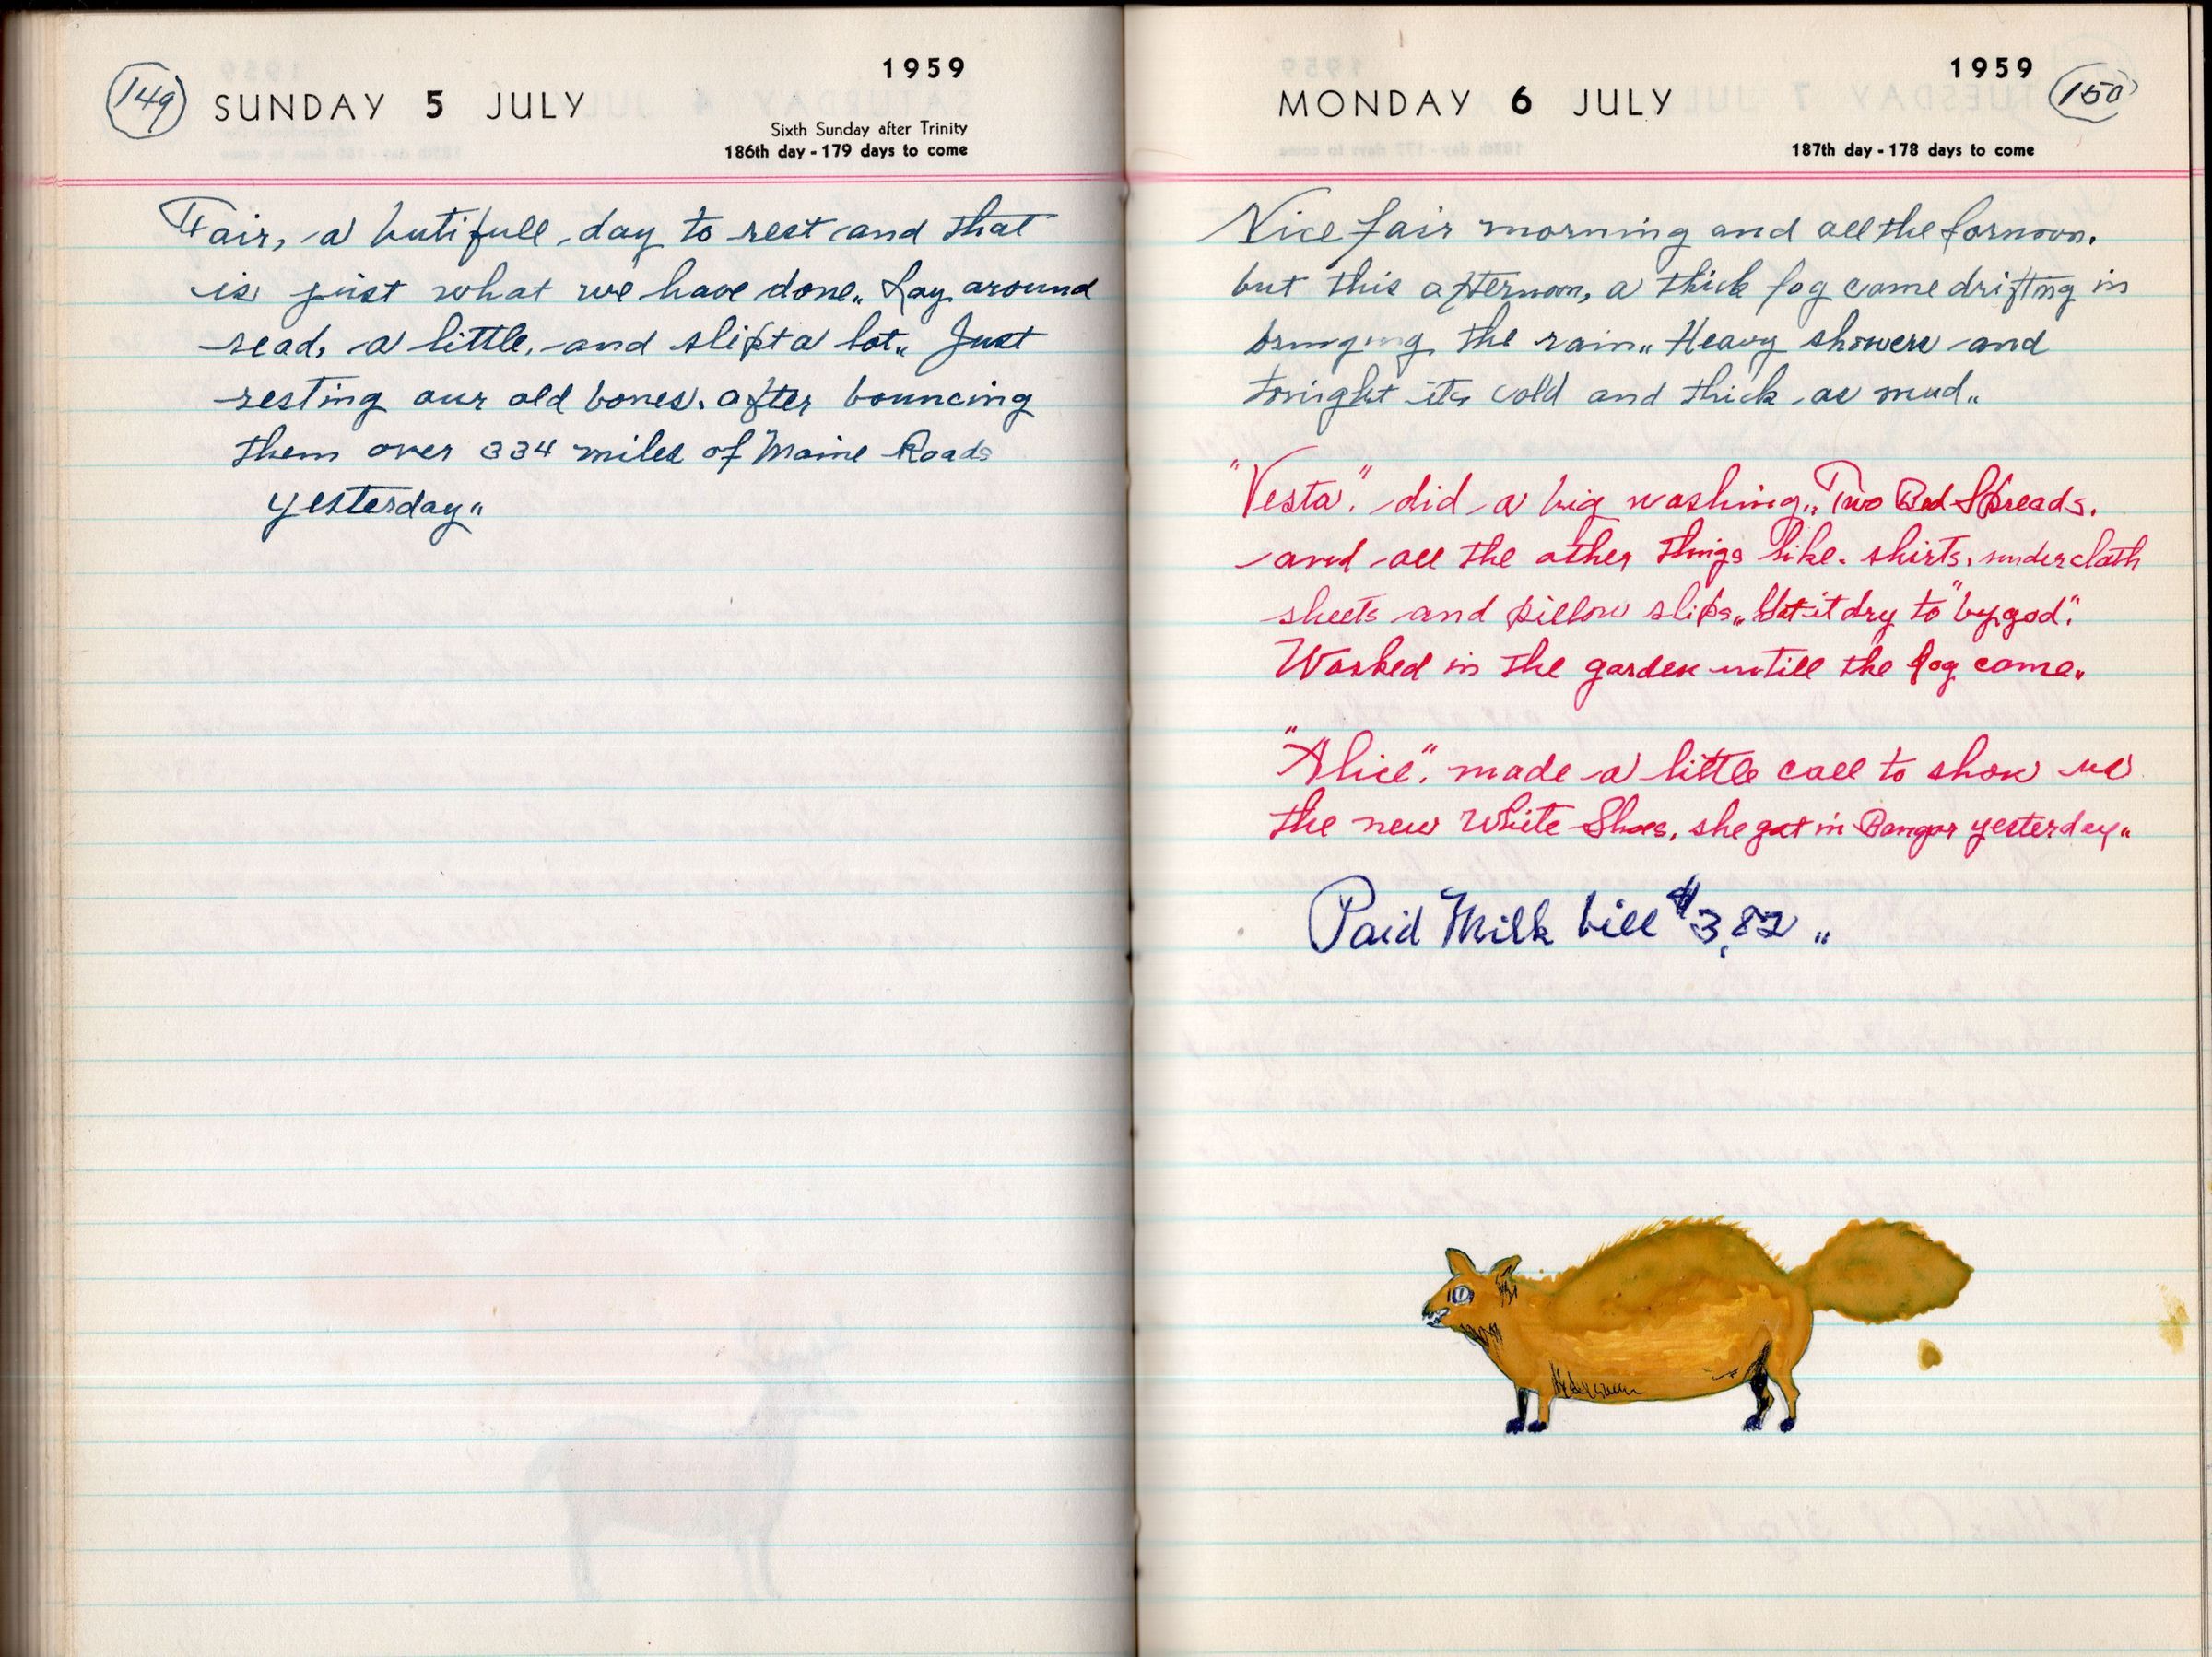 149
1959
SUNDAY 5 JULY
Sixth Sunday after Trinity
186th day - 179 days to come
Fair, a butifull day to rest and that
is just what we have done,, Lay around
read, a little, and slipt a lot,, Just
resting our old bones. after bouncing
them over 334 miles of Maine Roads
yesterday,,
1959
150
MONDAY 6 JULY
187th day - 178 days to come
Nice fair morning and all the fornoon.
but this afternoon, a thick fog came drifting in
bringing the rain,, Heavy showers and
tonight its cold and thick as mud,,
"Vesta". did a big washing,, Two Bed Spreads.
and all the other things like. shirts. undercloth
sheets and pillow slips,, Got it dry to "by.god".
Worked in the garden untill the fog came,,
"Alice". made a little call to show us
the new White Shoes, she got in Bangor yesterday,,
Paid Milk bill $3,82 ,,